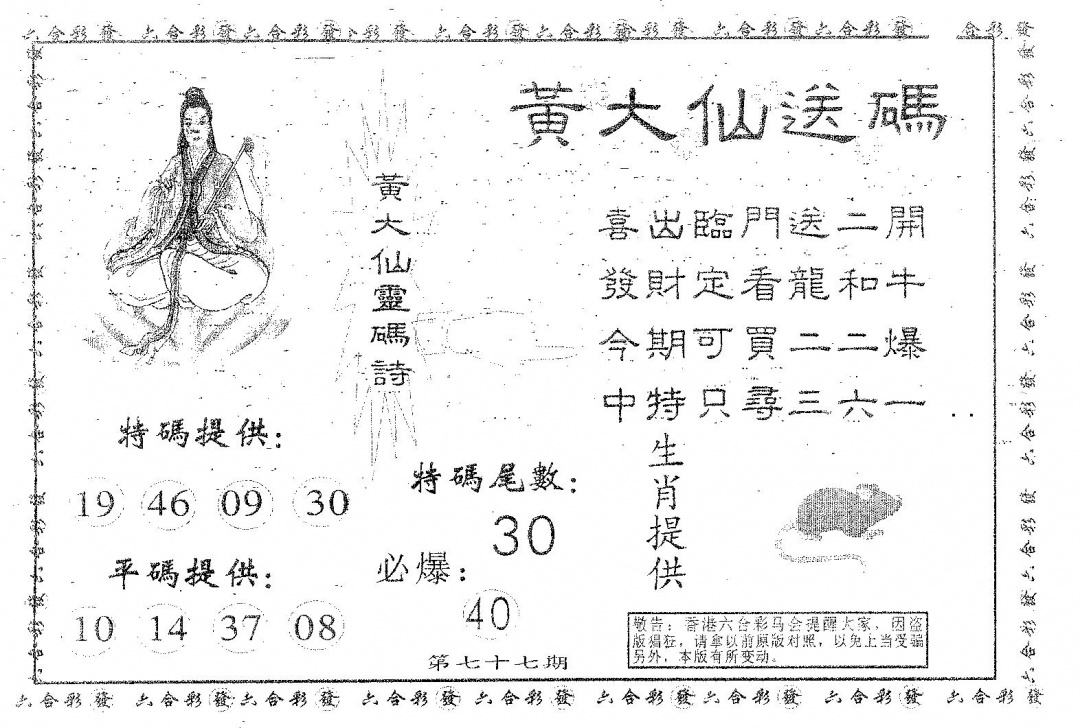 六合彩發 六合彩發六合彩發 彩發 六合彩發六合彩發彩發 六合彩發六合彩發 合彩發
黃大仙送碼
黃大仙靈碼詩
喜出臨門送二開
發財定看龍和牛
今期可買二二爆
中特只尋三六一
特碼提供:
19 46 09 30
平碼提供:
10 14 37 08
特碼尾數:
30
必爆:
40
第七十七期
生肖提供
敬告:香港六合彩马会提醒大家,因盗
版猖狂,请拿以前原版对照,以免上当受骗
另外,本版有所变动。
六合彩發 六合彩發六合彩發 六合彩發 六合彩發 六合彩發六合彩發 六合彩發 六合彩發